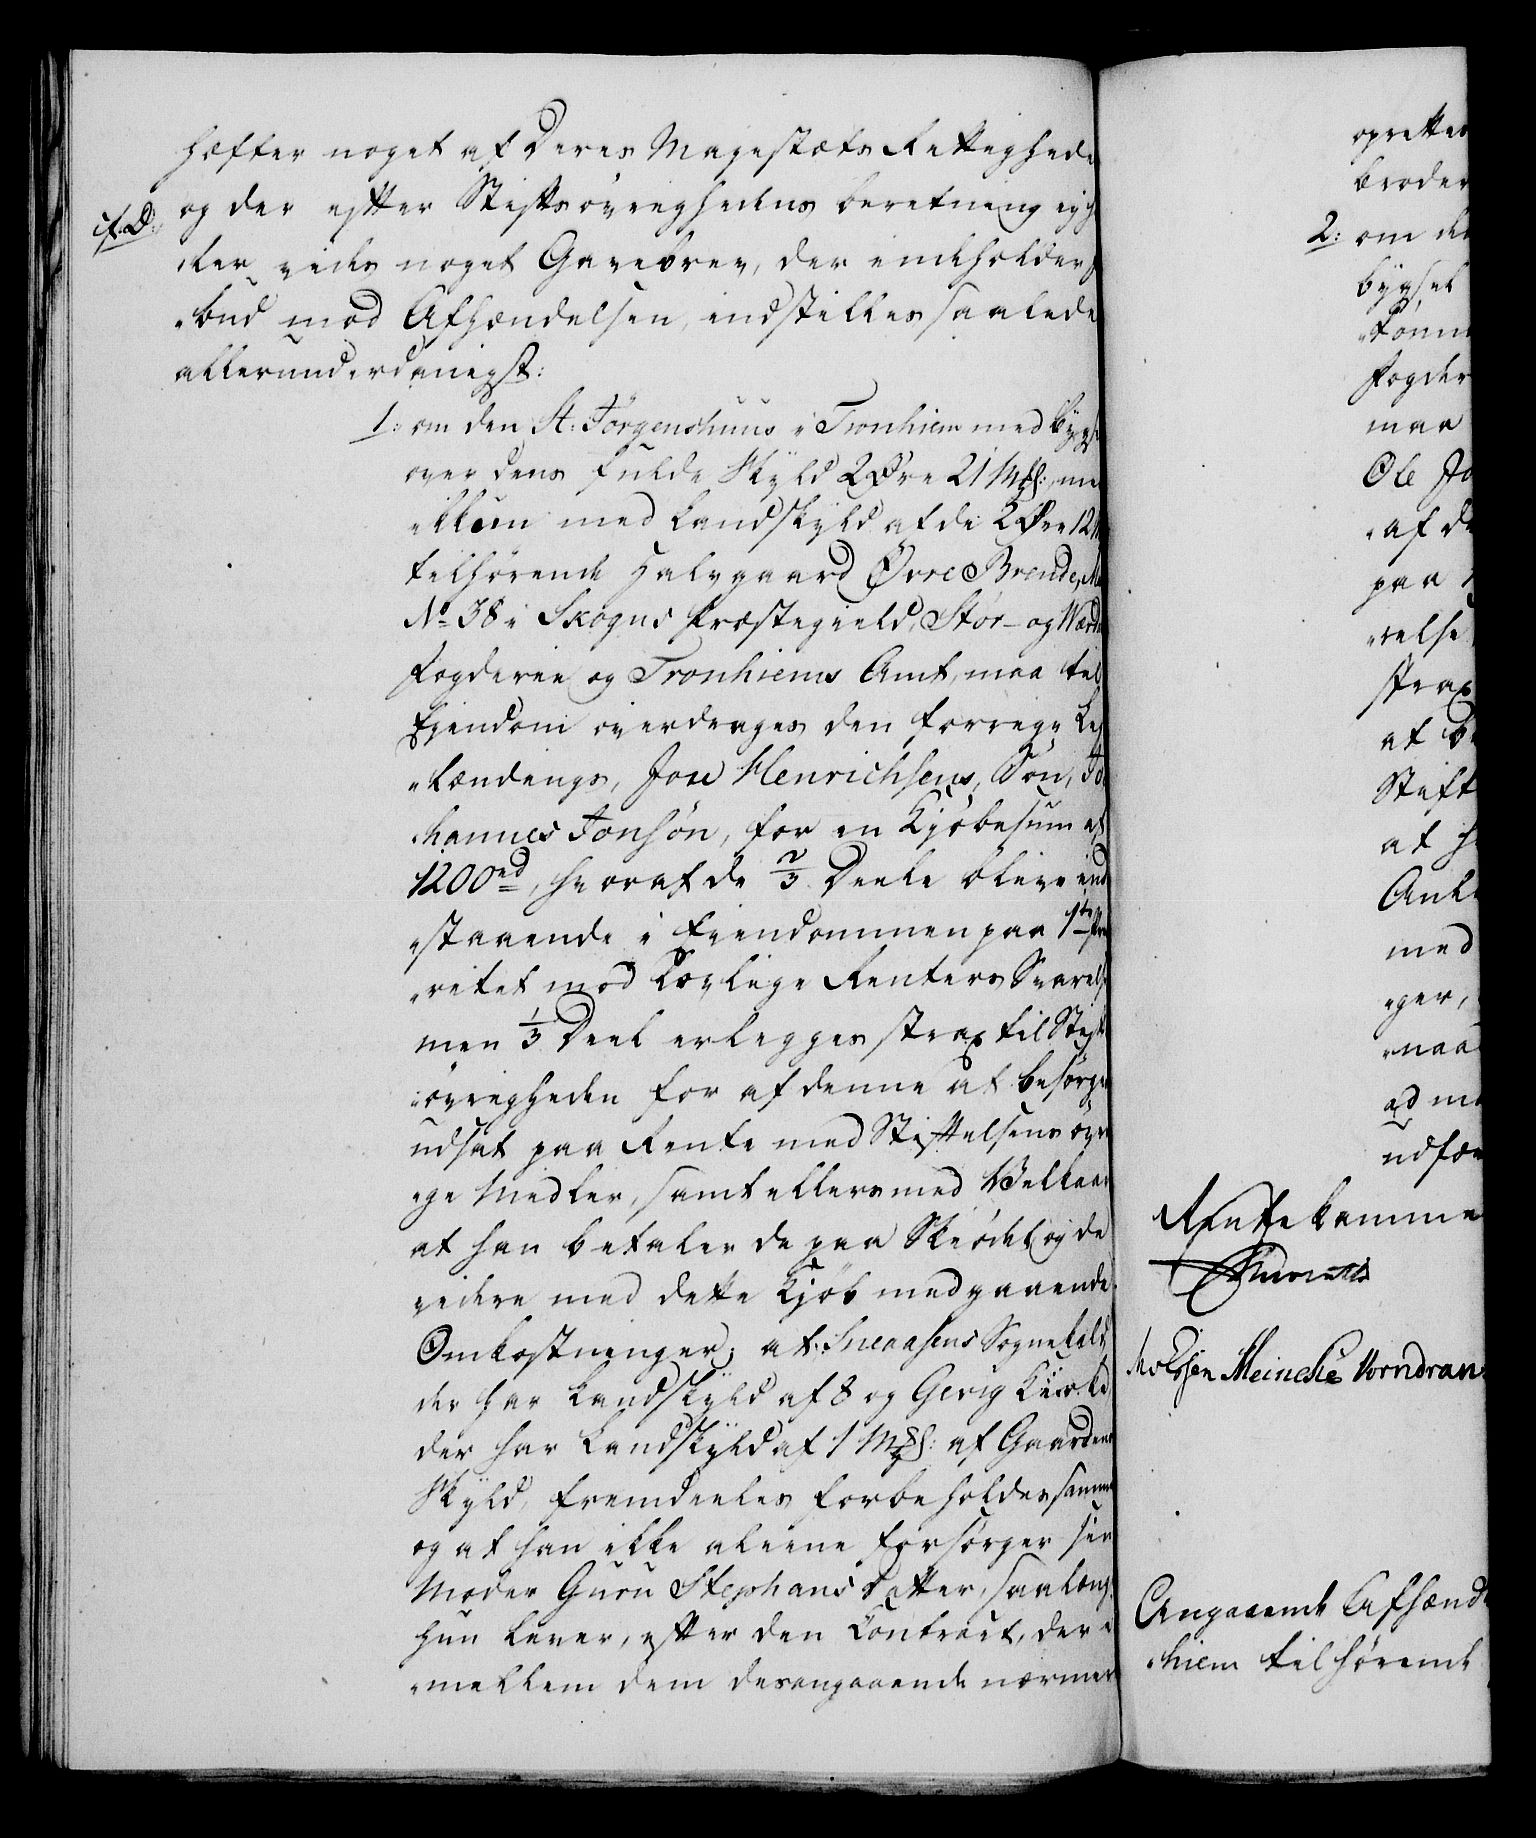 hæfter noget af Deres Majestæts Rettighede
og der efter Stiftsøvrighedens beretning ey h
cf. D:
der vides noget Gavebrev, der indeholder f
"bud mod Afhændelsen, indstilles saalede
allerunderdanigst:
1: om den St. Jörgenshuus i Tronhiem med byg
over dens fulde Skyld 2 Øre 21 Mkl:, me
"ikkun med Landskyld af de 2 Øre 12
tilhørende Halvgaard Øvre Brende, M
No 38 i Skogns Præstegield, Stør- og Værd
Fogderie og Tronhiems Amt, maa til
Ejendom overdrages den forrige Lej
"lændings, Jon Henrichsens, Søn, Jo
"hannes Jonsøn, for en Kjøbesum af
1200 rd, hvoraf de 2/3 Deele blive ind
"staaende i Ejendommen paa 1te Prio
"ritet mod lovlige Renters Svarels
men 1/3 Deel erlegges strax til Stift
"øvrigheden for af denne at besørge
udsat paa Rente med Stiftelsens øvr
"ige Midler, samt ellers med Vilkaar
at han betaler de paa Skiødet og de
videre med dette Kjøb medgaaende
Omkostninger; at Sneaasens Sognekald
der har Landskyld af 8 og Gerig Kirke
der har Landskyld af 1 Mkl: af Gaardens
Skyld, fremdeeles forbeholdes samme
og at han ikke aleene forsørger sin
Moder Guru Stephans Datter, saa læng
hun lever, efter den Contract, der i
"mellem dem desangaaende nærmer
oprettes
broder
2: om de
bygsel
"Tønn
Fogder
maa
Ole Jo
"af d
paa
"relse
strax
at b
Stift
at h
Anl
med
"ger,
"naa
ad m
udfær
Rentekamme
Meinche Vorndran
Angaaende Afhænd
"hiem tilhørende